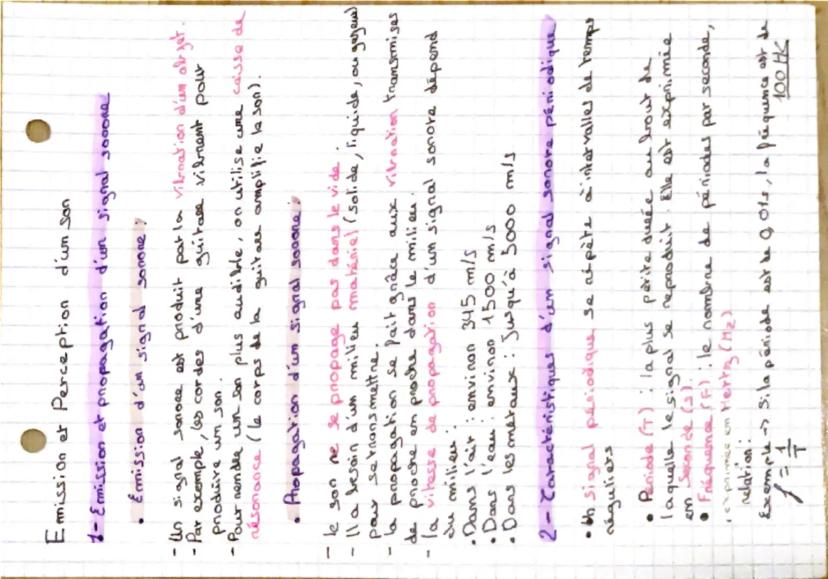 Emission et Perception d'un son
1 - Emission et propagation d'un signal sonore
• Emission d'un signal sonore :
- Un signal sonore est produit par la vibration d'un objet.
- Par exemple, les cordes d'une guitare vibrent pour
produire un son.
- Pour rendre un son plus audible, on utilise une caisse de
résonance (le corps de la guitare amplifie le son).
• Propagation d'un signal sonore :
- le son ne se propage pas dans le vide.
- Il a besoin d'un milieu matériel (solide, liquide, ou gazeux)
pour se transmettre.
- la propagation se fait grâce aux vibration transmises
de proche en proche dans le milieu.
- la vitesse de propagation d'un signal sonore dépend
du milieu :
• Dans l'air : environ 345 m/s
• Dans l'eau : environ 1500 m/s
• Dans les métaux : Jusqu'à 5000 m/s
2 - Caractéristiques d'un signal sonore périodique
• Un signal périodique se répète à intervalles de temps
réguliers
• Période (T) : la plus petite durée au bout de
laquelle le signal se reproduit. Elle est exprimée
en Seconde (s).
• Fréquence (F) : le nombre de périodes par seconde,
, exprimée en Hertz (Hz)
relation :
Exemple → Si la période est de 0,01s, la fréquence est de
f = 1/T 100 Hz